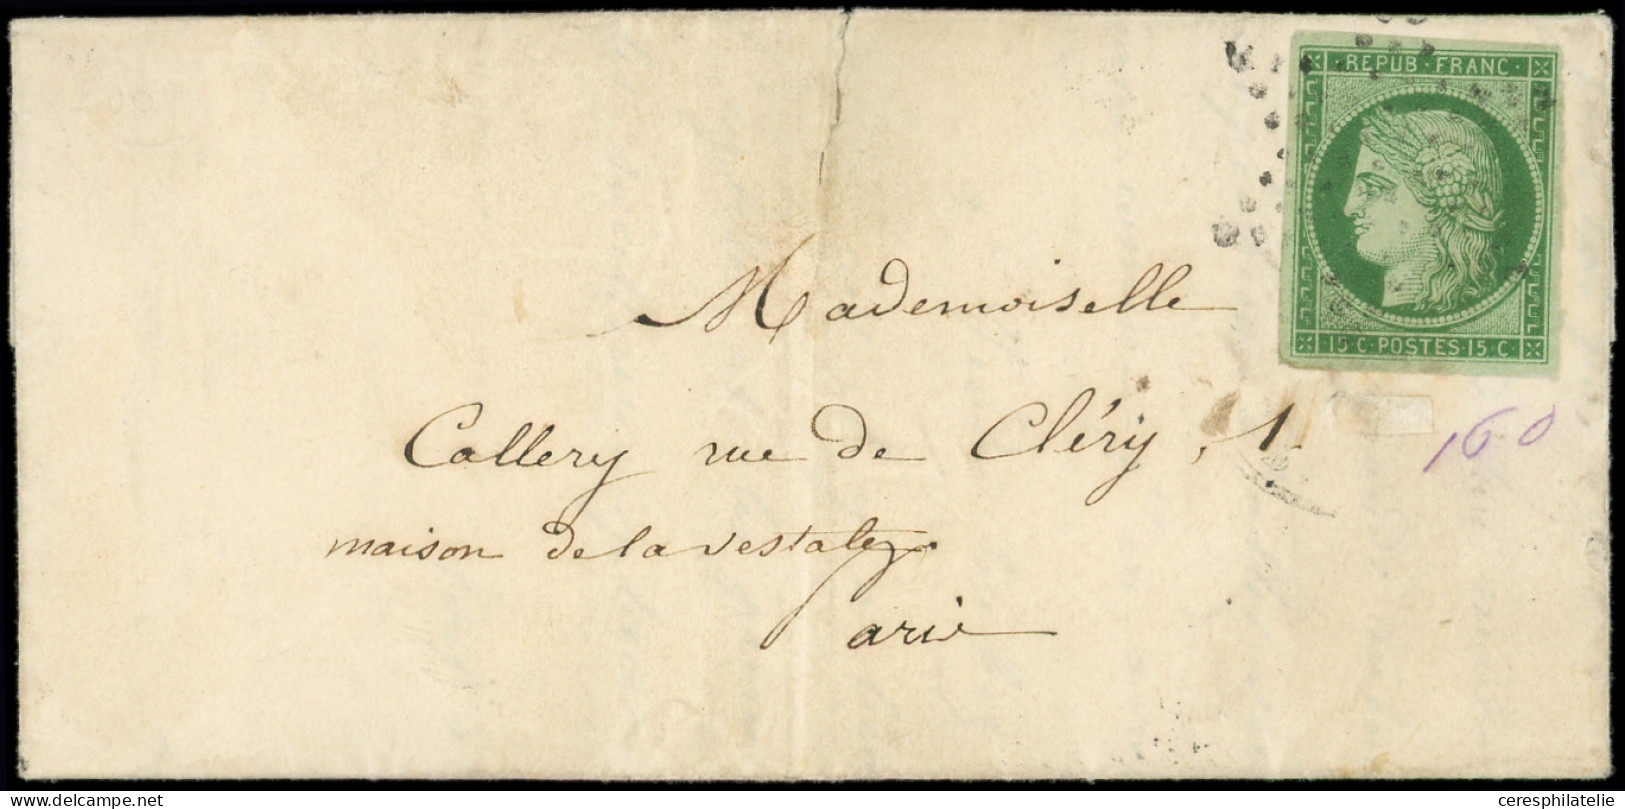 REPUB · FRANC ·
15 C · POSTES · 15 C
Mademoiselle
Callery rue de Cléry, 1.
160
maison de la vestale
Paris
www.delcampe.net
ceresphilatelie